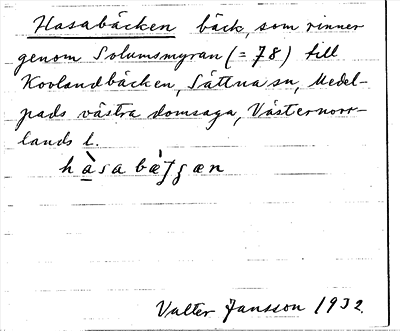 Hasabäcken bäck, som rinner
genom Solumsmyran (= 78) till
Kovlandbäcken, Sättna sn, Medel-
pads västra domsaga, Västernorr-
lands l.
hàsabæ̀ʃʃæn
Valter Jansson 1932.